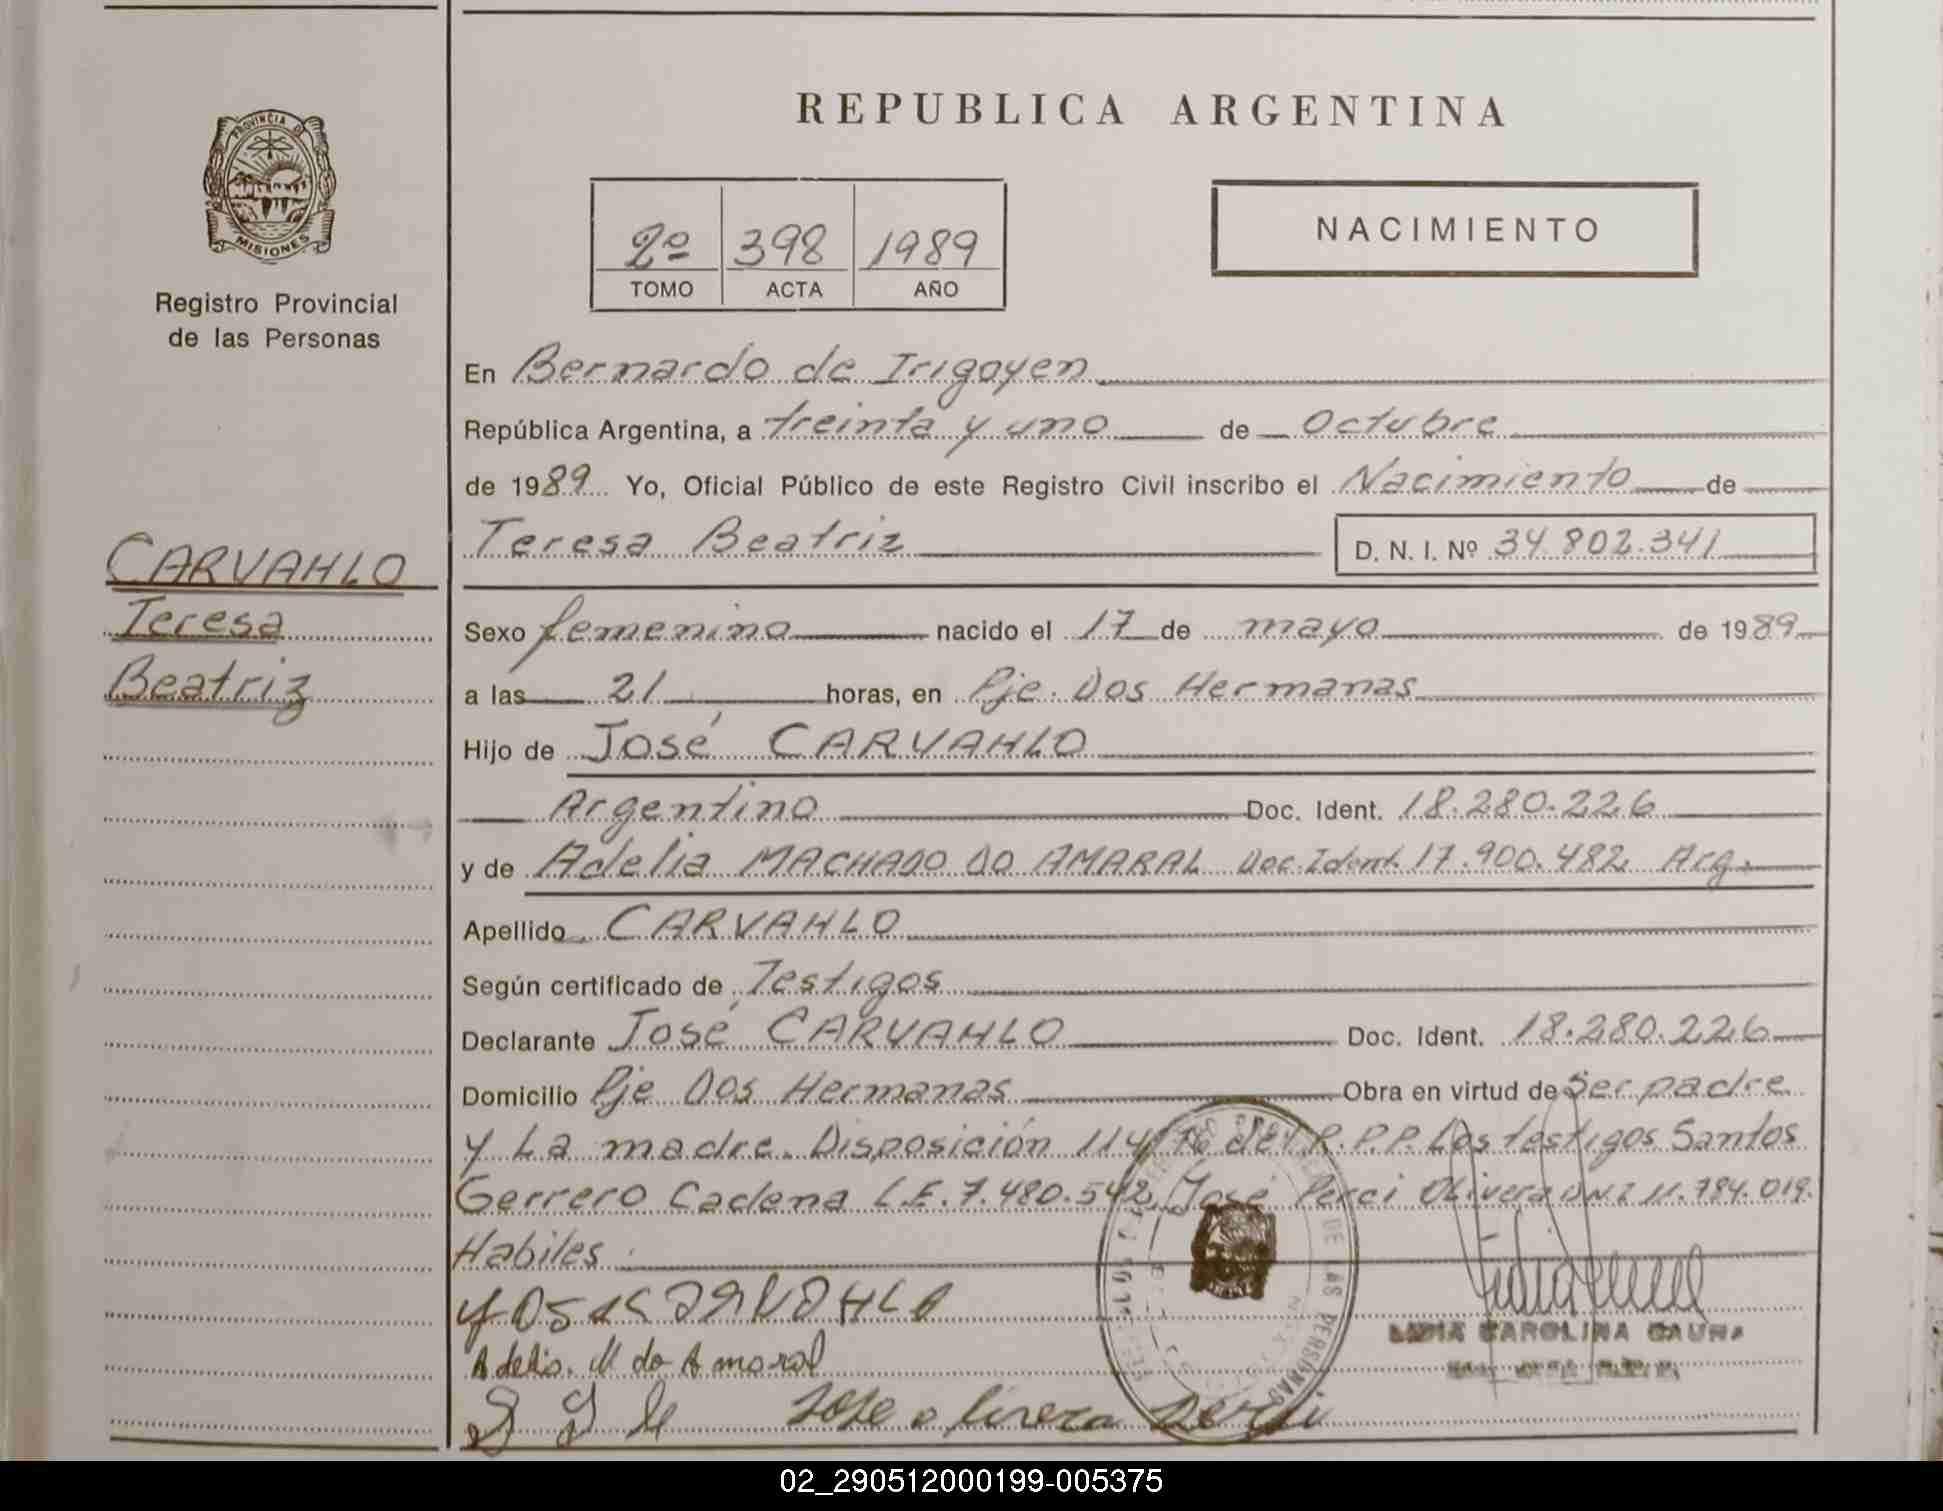 REPUBLICA ARGENTINA
PROVINCIA DE
MISIONES
Registro Provincial
de las Personas
2º 398 1989
TOMO ACTA AÑO
NACIMIENTO
En Bernardo de Irigoyen
República Argentina, a treinta y uno de Octubre
de 1989 Yo, Oficial Público de este Registro Civil inscribo el Nacimiento de
Teresa Beatriz D. N. I. Nº 34.802.341
CARVAHLO
Teresa
Beatriz
Sexo femenino nacido el 17 de mayo de 1989
a las 21 horas, en Pje. Dos Hermanas
Hijo de José CARVAHLO
Argentino Doc. Ident. 18.280.226
y de Adelia MACHADO DO AMARAL Doc. Ident. 17.900.482 Arg.
Apellido CARVAHLO
Según certificado de Testigos
Declarante José CARVAHLO Doc. Ident. 18.280.226
Domicilio Pje Dos Hermanas Obra en virtud de Ser padre
y La madre. Disposición del R.P.P. Los testigos Santos
Gerrero Cadena L.E. 7.480.542 José Perci Olivera D.N.I 11.784.019.
Habiles.
Adelia. M do Amaral
Jose olivera Perci
DE LAS PERSONAS
LIDIA CAROLINA GAUNA
02_290512000199-005375